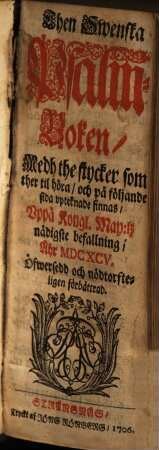 Then Swenska
Psalm-
Boken/
Medh the stycker som
ther til höra/ och på följande
sida vptecknade finnas/
Uppå Kongl. May:tz
nådigste befallning/
Åhr MDCXCV.
Öfwersedd och nödtorfte-
ligen förbättrad.
STRÄNGNÄS/
Tryckt af ZACH. ASP/ 1706.